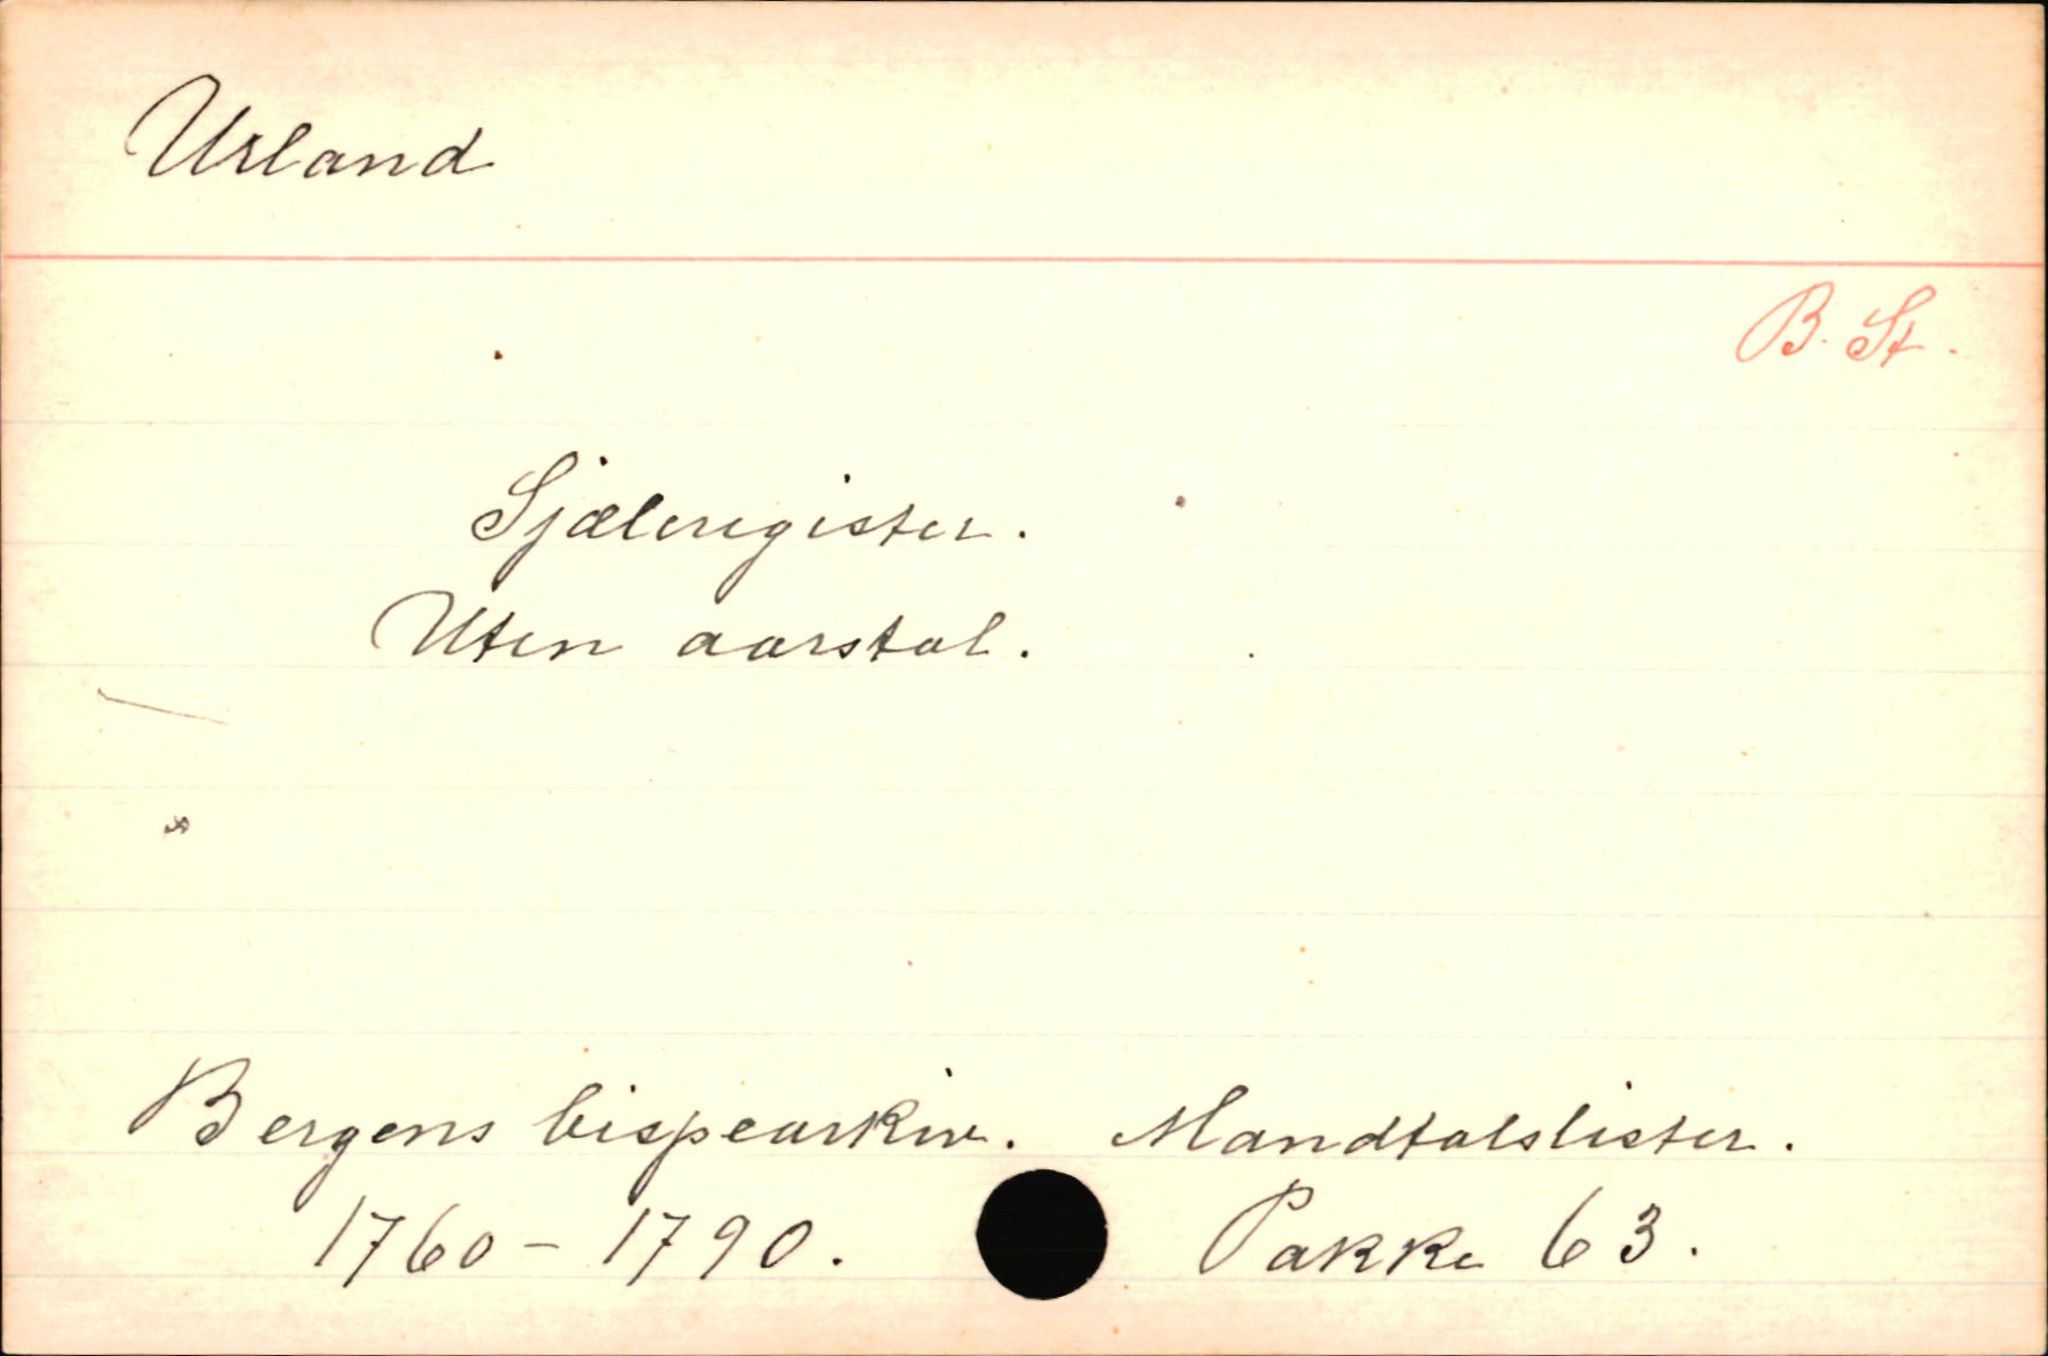 Urland
B. St.
Sjæleregister.
Uten aarstal.
Bergens bispearkiv. Mandtalslister.
1760-1790. Pakke 63.